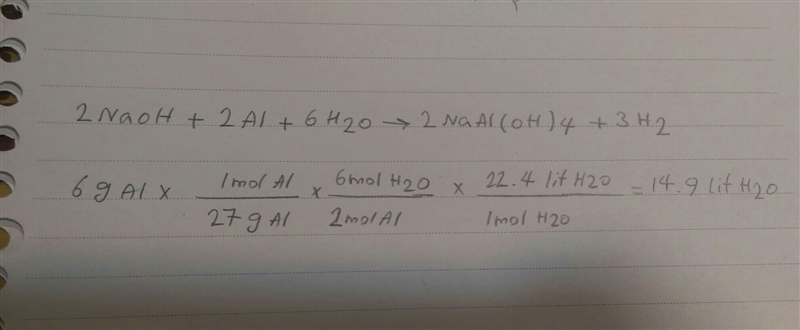 2NaOH + 2Al + 6H2O → 2NaAl(OH)4 + 3H2
6g Al × 1mol Al / 27g Al × 6mol H2O / 2mol Al × 22.4 lit H2O / 1mol H2O = 14.9 lit H2O